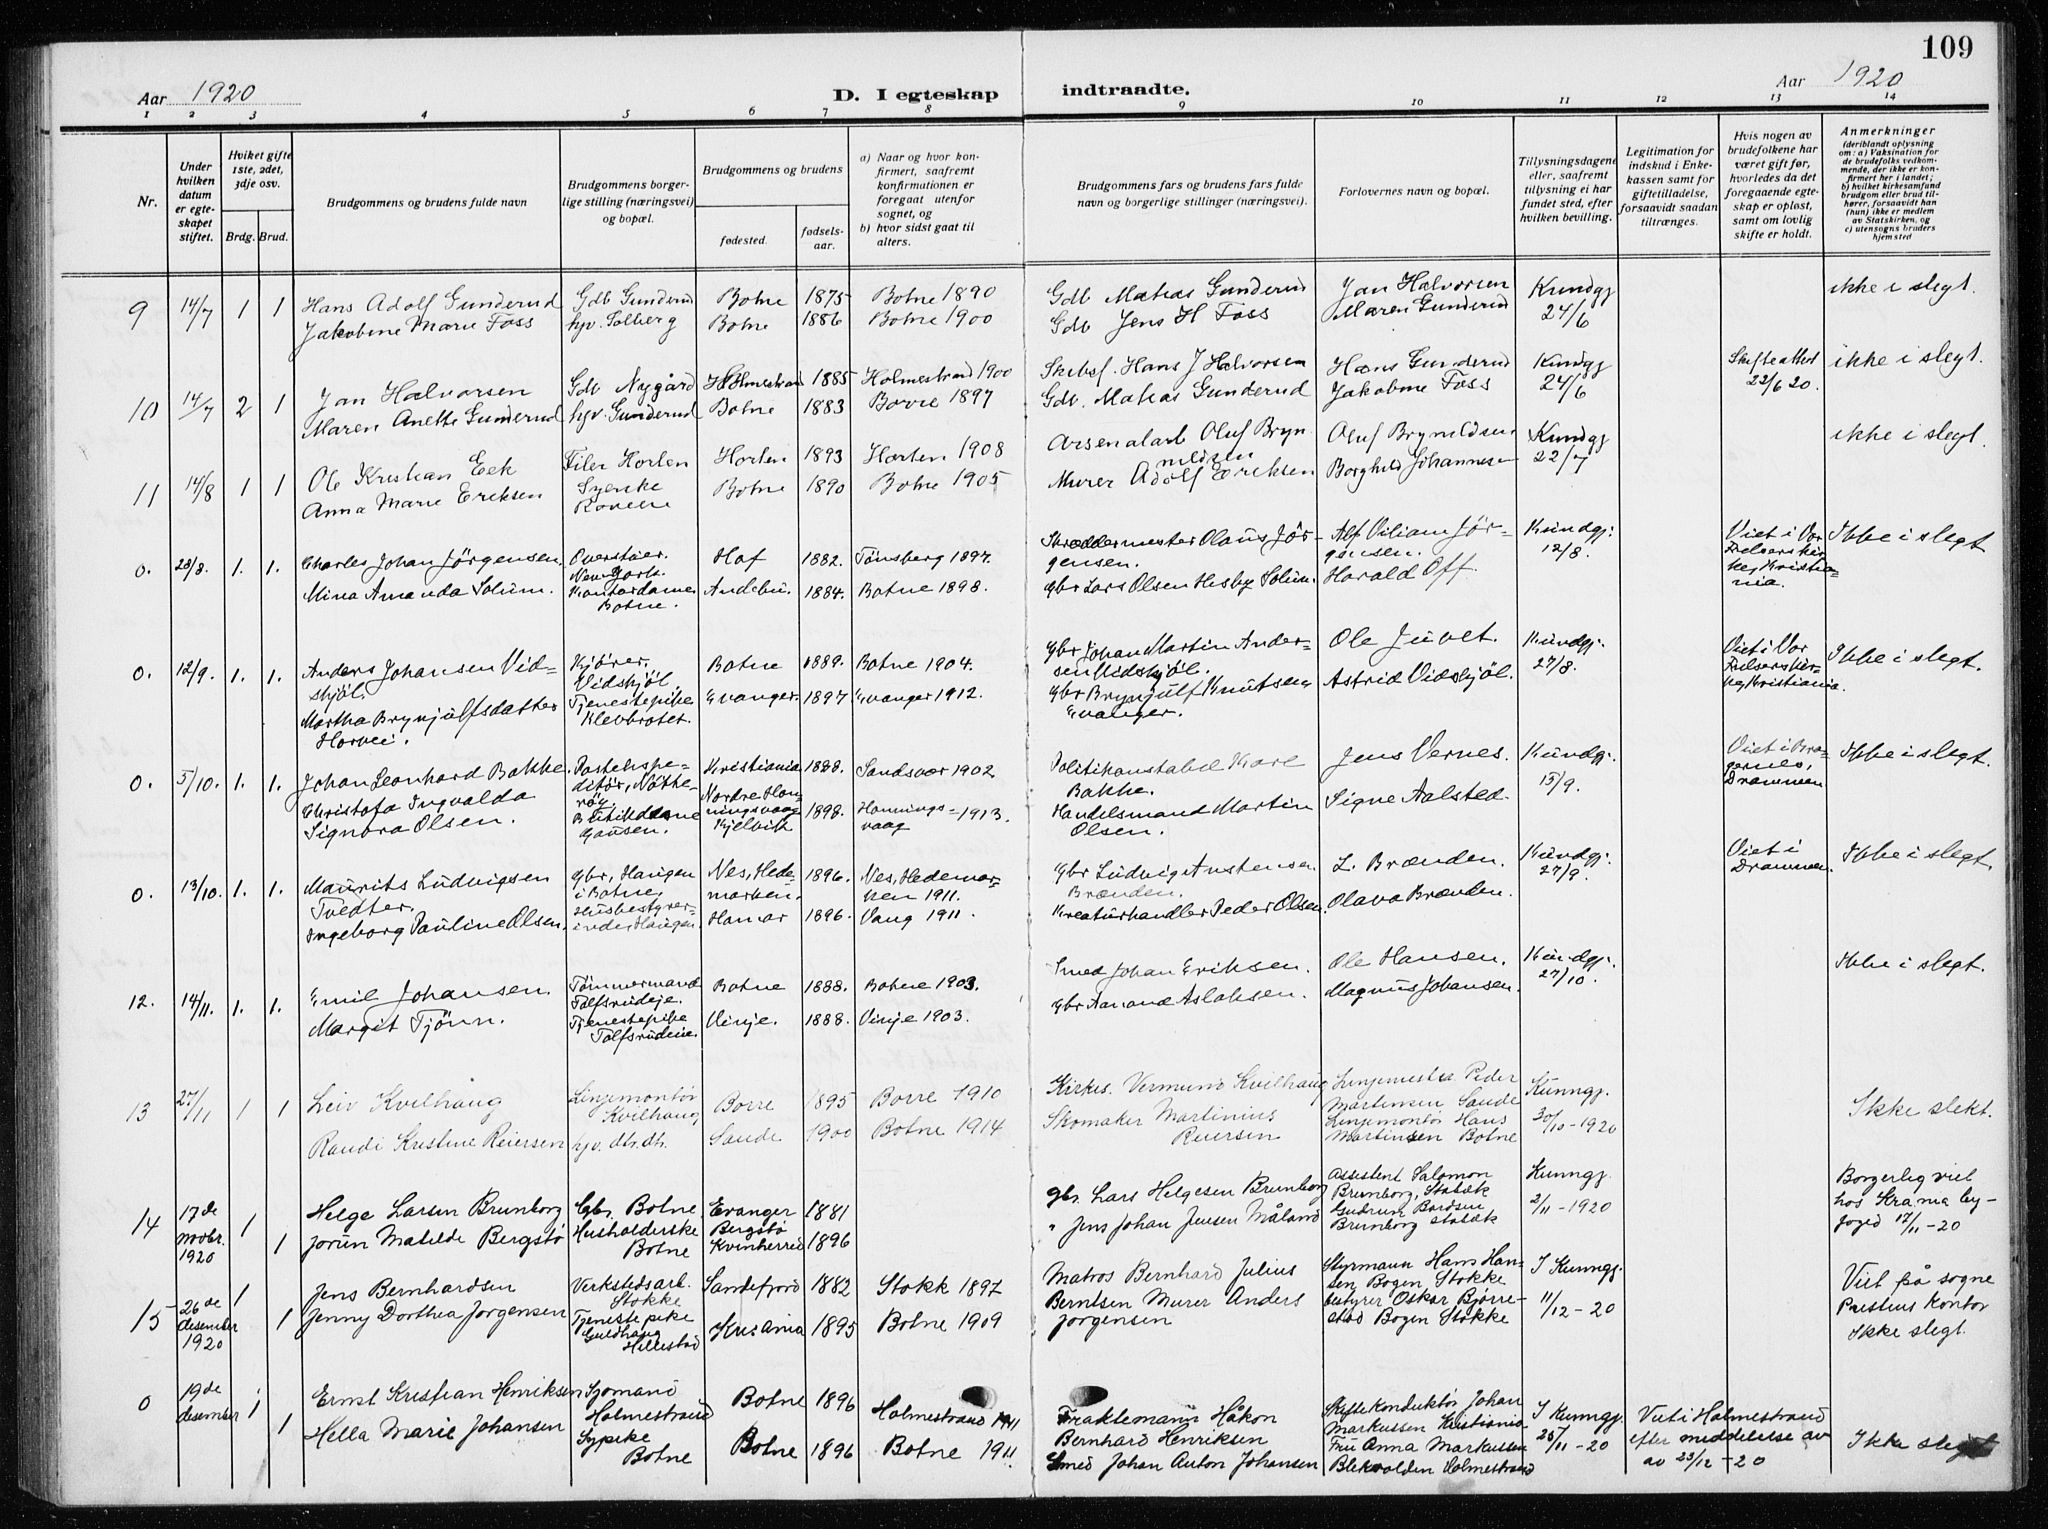 109
Aar 1920
D. I egteskap indtraadte.
Aar 1920
1 2 3 4 5 6 7 8 9 10 11 12 13 14
Nr.
Under hvilken datum er egteskapet stiftet.
Hviket gifte 1ste, 2det, 3dje osv.
Brdg. Brud.
Brudgommens og brudens fulde navn
Brudgommens borgerlige stilling (næringsvei) og bopæl.
Brudgommens og brudens
fødested.
fødselsaar.
a) Naar og hvor konfirmert, saafremt konfirmationen er foregaat utenfor sognet, og
b) hvor sidst gaat til alters.
Brudgommens fars og brudens fars fulde navn og borgerlige stillinger (næringsvei).
Forlovernes navn og bopæl.
Tillysningsdagene eller, saafremt tillysning ei har fundet sted, efter hvilken bevilling.
Legitimation for indskud i Enkekassen samt for giftetilladelse, forsaavidt saadan tiltrænges.
Hvis nogen av brudefolkene har været gift før, hvorledes da det foregaaende egteskap er opløst, samt om lovlig skifte er holdt.
Anmerkninger (deriblandt oplysning om: a) Vaksination for de brudefolks vedkommende, der ikke er konfirmert her i landet; b) hvilket kirkesamfund brudgom eller brud tilhører, forsaavidt han (hun) ikke er medlem av Statskirken, og c) utensogns bruders hjemsted
9 14/7 1 1 Hans Adolf Gunderud Gdb Gunderud Botne 1875 Botne 1890 Gdb Matias Gunderud Jan Halvorsen Kundgj ikke i slegt.
Jakobine Marie Foss hjv. Solberg Botne 1886 Botne 1900 Gdb Jens H Foss Maren Gunderud 24/6
10 14/7 2 1 Jan Halvorsen Gdb Nygård Holmestrand 1885 Holmestrand 1900 Skibsf. Hans J Halvorsen Hans Gunderud Kundgj Skifteattest ikke i slegt.
Maren Anette Gunderud hjv. Gunderud Botne 1883 Borre 1897 Gdb. Matias Gunderud Jakobine Foss 24/6 22/6 20.
11 14/8 1 1 Ole Kristian Eek Filer Horten Horten 1893 Horten 1908 Arsenalarb Oluf Brynildsen Oluf Brynildsen Kundgj ikke i slegt
Anna Marie Eriksen Syerske Botne 1890 Botne 1905 Murer Adolf Eriksen Borghild Johannesen 22/7
0. 28/8. 1. 1. Charles Johan Jörgensen. Overstuer. New York. Hof 1882. Tönsberg 1897. Skræddermester Olaus Jörgensen. Alf Viliam Jörgensen. Kundgj: 12/8. Viet i Vor Frelsers kirke, Kristiania. Ikke i slegt
Mina Amanda Solum. Kontordame Botne. Andebu. 1884. Botne 1898. Gbr Lars Olsen Hesby Solum. Harald Off
0. 12/9. 1. 1. Anders Johansen Vidskjöl. Kjörer. Vidskjöl Botne 1889. Botne 1904. Gbr Johan Martin Andersen Vidskjöl. Ole Juvet. Kundgj: 27/8. Viet i Vor Frelsers kirke, Kristiania. Ikke i slegt.
Martha Brynjulfsdatter Horvei. Tjenestepike Klevbrotet. Evanger. 1897 Evanger 1912. Gbr Brynjulf Knutsen Evanger. Astrid Vidskjöl.
0. 5/10. 1. 1. Johan Leonhard Bakke. Nötteröy. Kristiania 1888. Sandsvær 1902. Politikonstabel Kare Bakke. Jens Vernes. Kundgj: 15/9. Viet i Bragernes, Drammen Ikke i slegt.
Christofa Ingvalda Signora Olsen. Gausen. Nordre Honningsvaag Kjelvik 1898. Honningsvaag 1913. Handelsmand Martin Olsen. Signe Aalsted.
0. 13/10. 1. 1. Maurits Ludvigsen Tvedter. Gbr, Haugen i Botne. Nes, Hedemarken. 1896. Nes, Hedemarken 1911. Gbr Ludvig Austensen Brænden. L. Brænden. Kundgj: 27/9. Viet i Drammen. Ikke i slegt.
Ingeborg Pauline Olsen. Husbestyrerinde Haugen. Hamar 1896. Vang 1911. Kreaturhandler Peder Olsen. Olava Brænden.
12. 14/11. 1. 1. Emil Johansen. Tömmermand Botne 1888. Botne 1903. Smed Johan Eriksen. Ole Hansen. Kundgj: 27/10. Ikke i slegt.
Margit Tjönn. Tjenestepike Vinje. 1888. Vinje 1903. Gbr Aamund Aslaksen. Magnus Johansen.
13 27/11 1 1 Leiv Kvilhaug Linjemontör Kvilhaug Borre 1895 Borre 1910 Kirkes. Vermund Kvilhaug Linjemester Peder Martinsen Sande Kunngj. 30/10-1920 Ikke slekt.
Randi Kristine Reiersen hjv. dtr. dr. Sande 1900 Botne 1914 Skomaker Martinius Reiersen Linjemontör Hans Martinsen Botne
14 17de novbr. 1920 1 Helge Larsen Brunborg Gbr. Botne Evanger 1881 gbr. Lars Helgesen Brunborg Assistent Salomon Brunborg, Stabæk Kunngj. 2/11-1920 Borgerlig viet hos Kra.na byfogd 17/11-20
1 Jorun Matilde Bergstø Husholderske Botne Bergstø Kvinherred 1896 " Jens Johan Jensen Måland Gudrun Bordsen Brunborg Stabæk
15 26de desember 1920 1 Jens Bernhardsen Verkstedsarb. Stokke Sandefjord 1882 Stokk 1897 Matros Bernhard Julius Berntsen Styrmann Hans Hansen Bogen Stokke I Kunngj. 11/12-20 Viet på sogneprestens kontor Ikke slegt.
1 Jenny Dorthea Jørgensen Tjenestepike Guldhaug Hillestad Kr:ania 1895 Botne 1909 Murer Anders Jørgensen bestyrer Oskar Bjørrestad Bogen Stokke
0 19de desember 1 Ernst Kristian Henriksen Sjømand Holmestrand Botne 1896 Holmestrand 1911 Fraktemann Håkon Bernhard Henriksen Skiftekonduktør Johan Markussen Kristiania I Kunngj. 25/11-20 Viet i Holmestrand efter meddelelse av av 23/12-20 Ikke slegt
1 Hella Marie Johansen Sypike Botne Botne 1896 Botne 1911. Smed Johan Anton Johansen Fru Anna Markussen Blekvolden Holmestrand